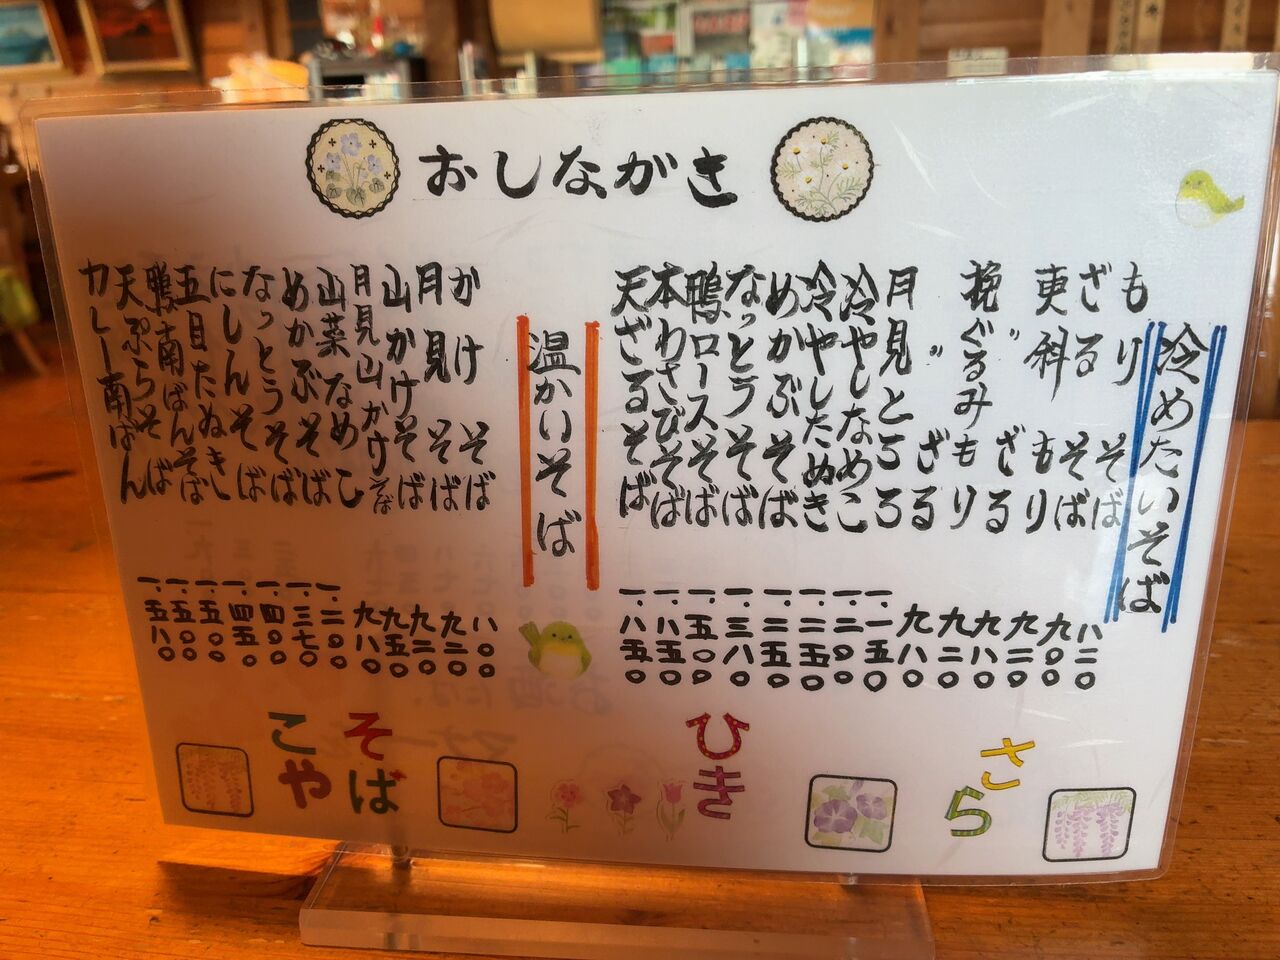 おしながき
冷めたいそば
もりそば 八二〇
ざるそば 九〇〇
更科もり 九二〇
〃ざる 九八〇
挽ぐるみもり 九二〇
〃ざる 九八〇
月見とろろ 一.一五〇
冷やしなめこ 一.二〇〇
冷やしたぬき 一.二五〇
めかぶそば 一.二五〇
なっとうそば 一.三八〇
鴨ロースそば 一.五〇〇
本わさびそば 一.八五〇
天ざるそば 一.八五〇
温かいそば
かけそば 八〇〇
月見そば 九二〇
山かけそば 九二〇
月見山かけそば 九五〇
山菜なめこ 九八〇
めかぶそば 一.二〇〇
なっとうそば 一.三七〇
にしんそば 一.四〇〇
五目たぬき 一.四五〇
鴨南ばんそば 一.五〇〇
天ぷらそば 一.五〇〇
カレー南ばん 一.五八〇
さら
ひき
そば
こや